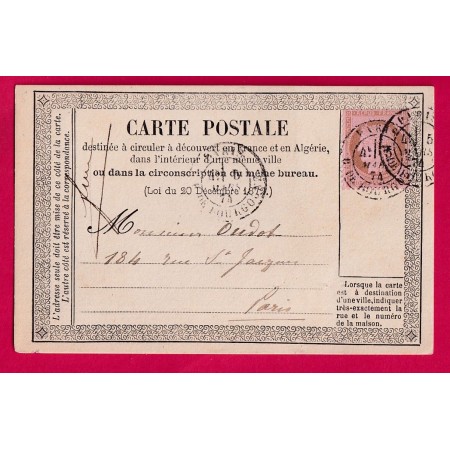 CARTE POSTALE
destinée à circuler à découvert en France et en Algérie,
dans l'intérieur d'une même ville
ou dans la circonscription du même bureau.
(Loi du 20 Décembre 1872.)
L'adresse seule doit être mise de ce côté de la carte.
L'autre côté est réservé à la correspondance.
Monsieur Oudot
184 rue St Jacques
Paris
Lorsque la carte
est à destination
d'une ville, indiquer
très-exactement la
rue et le numéro
de la maison.